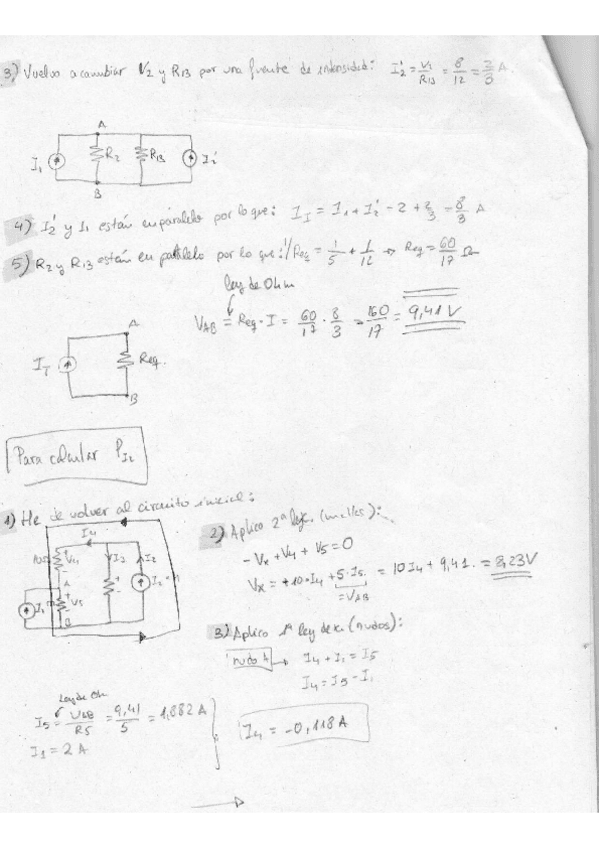 3) Vuelvo a cambiar V2 y R13 por una fuente de intensidad: I2' = V1/R13 = 8/12 = 2/3 A
A
I1 R2 R13 I2'
B
4) I2' y I1 están en paralelo por lo que: IT = I1 + I2' = 2 + 2/3 = 8/3 A
5) R2 y R13 están en paralelo por lo que: 1/Req = 1/5 + 1/12 → Req = 60/17 Ω
Ley de Ohm
VAB = Req · I = 60/17 · 8/3 = 160/17 = 9,41 V
A
IT Req.
B
Para calcular PI2
1) He de volver al circuito inicial:
2) Aplico 2ª ley k. (mallas):
I4
-Vx + V4 + V5 = 0
V4 I3 I2
Vx = +10·I4 + 5·I5 = 10 I4 + 9,41 = 8,23V
= VAB
A
I1 V5
B
3) Aplico 1ª ley de k. (nudos):
nudo A → I4 + I1 = I5
I4 = I5 - I1
Ley de Oh
I5 = VAB/R5 = 9,41/5 = 1,882 A
I1 = 2 A
I4 = -0,118 A